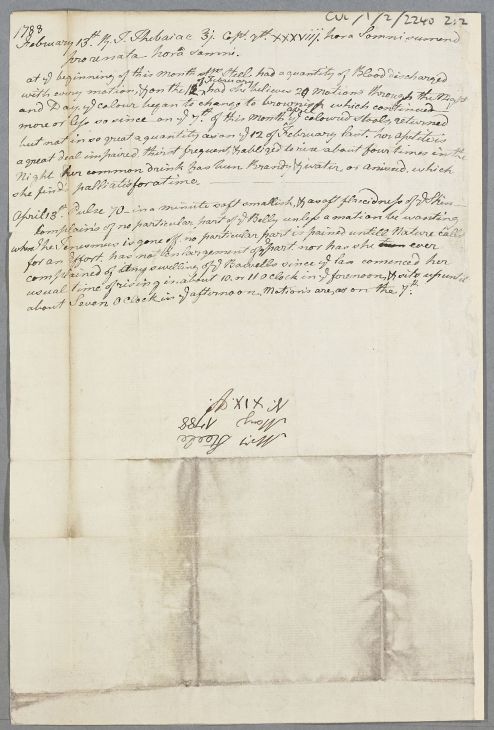 CUL/1/2/2240 2:2
1788
February 13th. ℞ T. Thebaiac ʒj. Cept. gtt XXXViij. hora Somni sumend
pro re nata hora somni.
at ye beginning of this Month Mrs. Steel had a quantity of Blood discharged
with every motion, & on the 12 of February had She believes 20 Motions through the Night
and Day, ye colour began to change to brownish which continued
more or less so since on ye 7th. of this Month April ye coloured stools returned
but not in so great a quantity as on ye 12 of February last, her apetite is
a great deal impaired thirst frequent, & oblized to rise about four times in the
Night her common drink has been Brandy & water, or aniseed, which
she finds palliatif for a time.
April 13th. Pulse 70 - in a minite soft smallish, & a soft flaccidness of ye skin
Complains of no particular part of ye Belly unless a motion be wanting
when her tenesmus is gone off no particular part is pained untill Nature calls
for an effort, has no enlargement of ye part nor has she ever
complained of any swelling of ye Bowells since ye has comenced her
usual time of rising in about 10. or 11 O Clock in ye forenoon, & sits up until
about Seven O Clock in ye afternoon. Motions are, as on the 7th.
Mrs Steele
Mary 1788
N. XIX